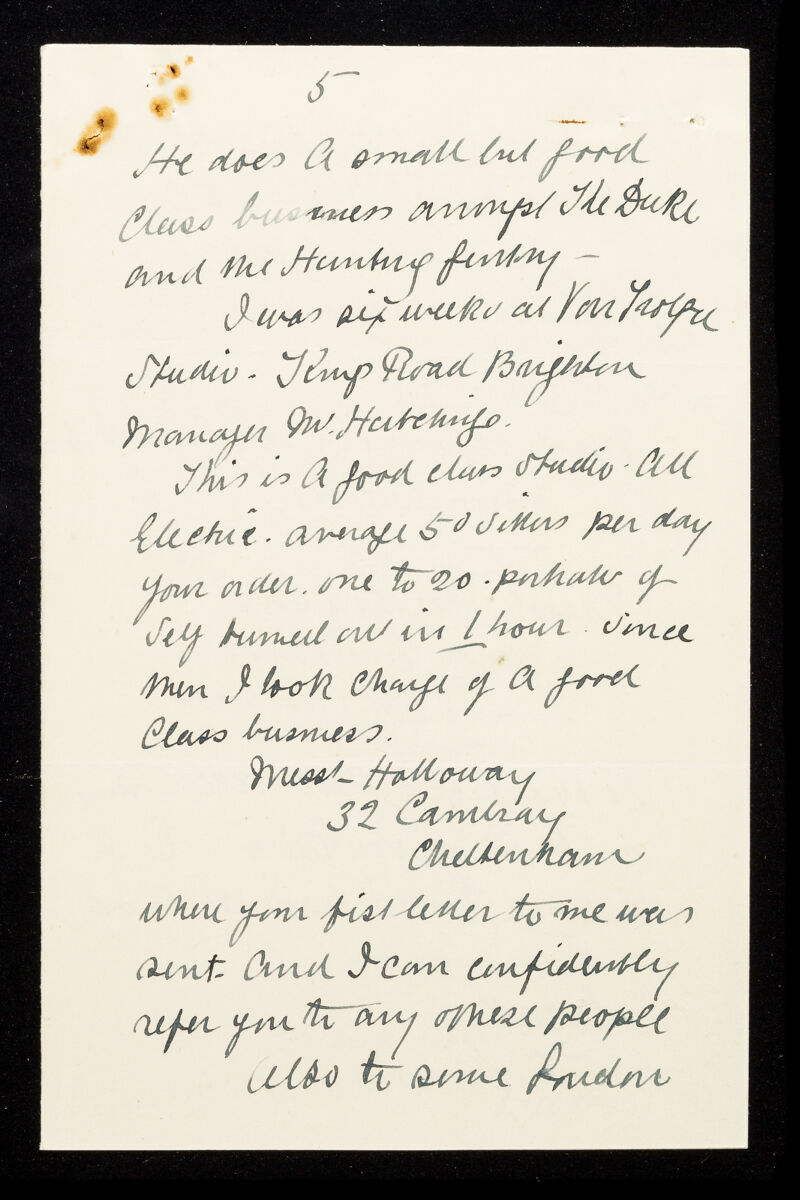 5
He does A small but good
Class business amongst The Duke
and the Hunting gentry —
I was six weeks at Von
Studio. Kings Road Brighton
Manager Mr. Hutchings.
This is A good class studio. All
Electric. average 50 sitters per day
your order. one to 20. portraits of
Self turned out in 1 hour. Since
then I took charge of A good
Class business.
Messrs Holloway
32 Cambray
Cheltenham
where your fist letter to me was
sent. And I can confidently
refer you to any of these people
Also to some London